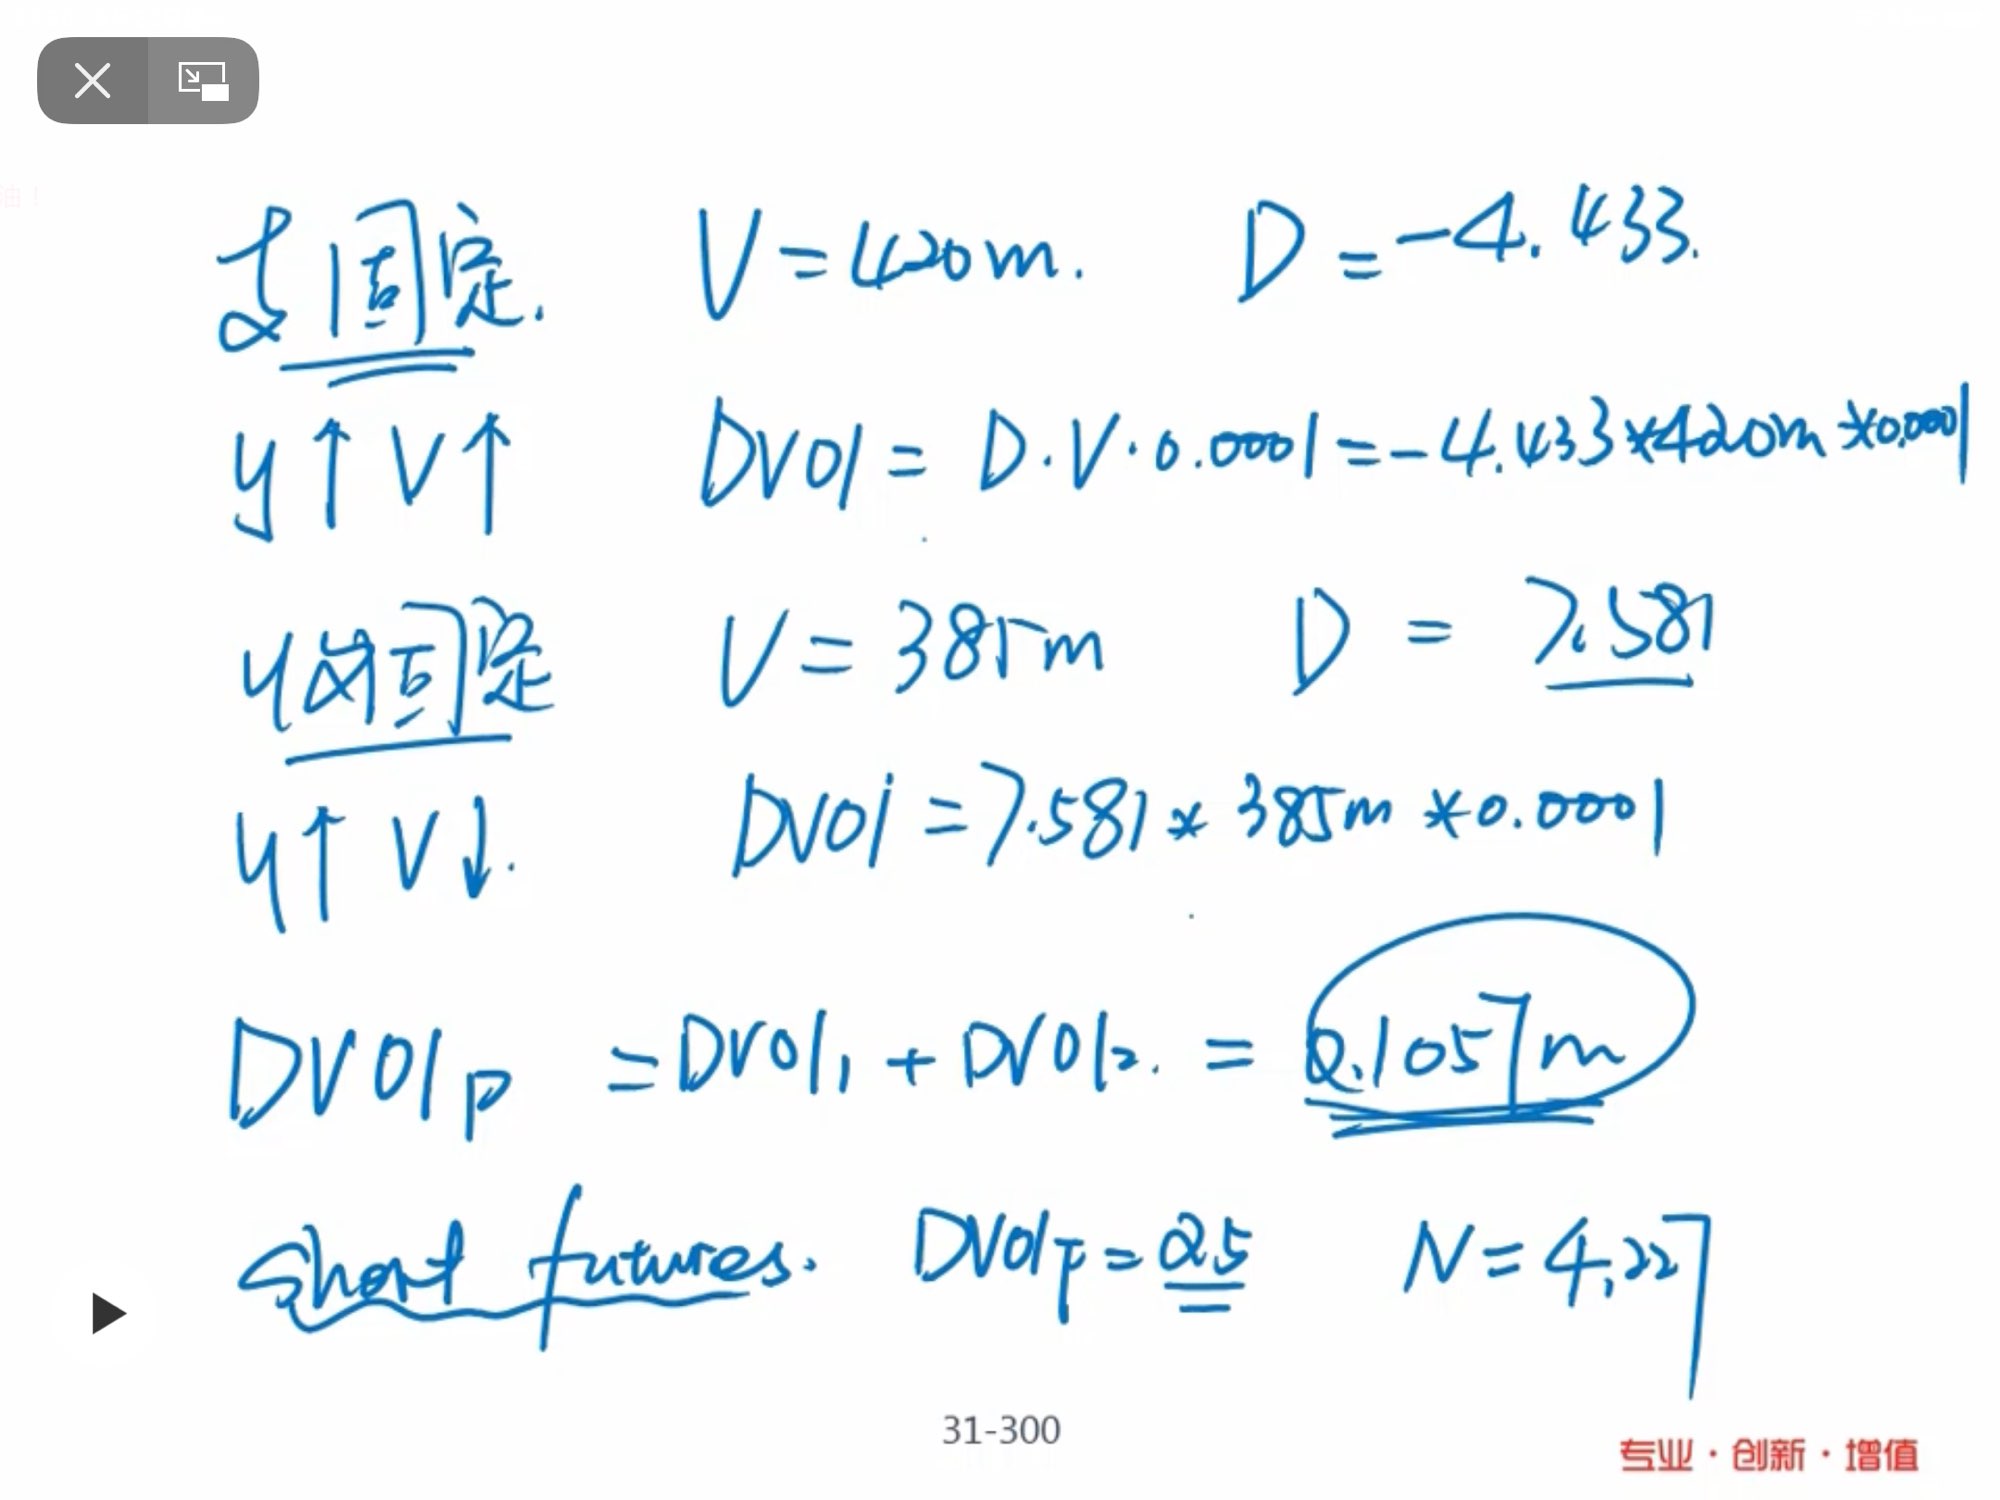 支固定. V = 420m. D = -4.433.
y↑ V↑ DV01 = D·V·0.0001 = -4.433*420m*0.0001
收固定 V = 385m D = 7.581
y↑ V↓. DV01 = 7.581 * 385m * 0.0001
DV01p = DV01₁ + DV01₂. = 0.1057m
short futures. DV01F = 25 N = 4,227
31-300
专业·创新·增值